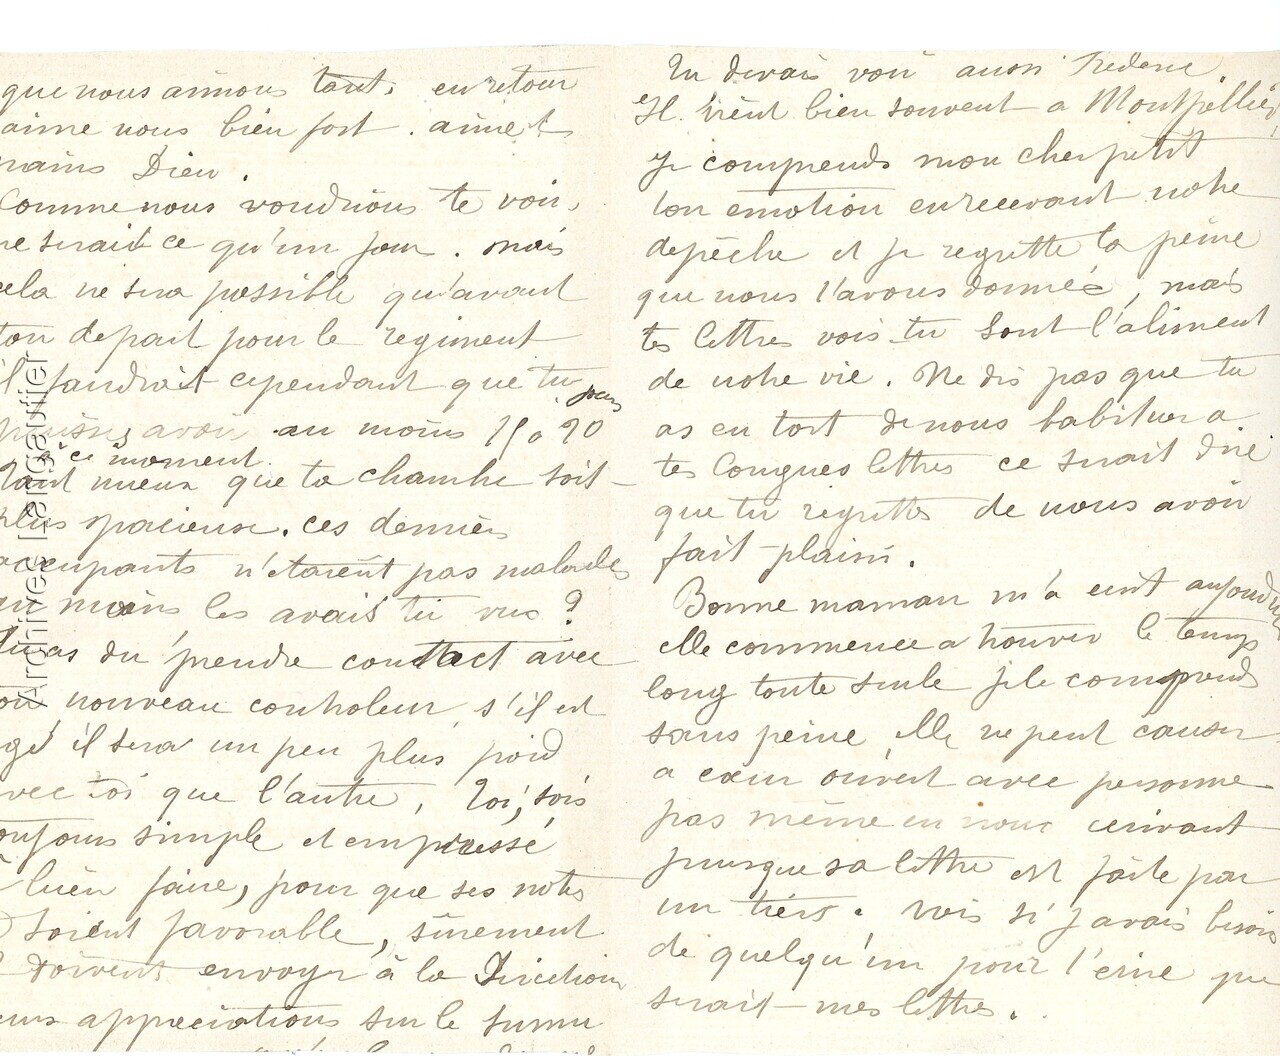 que nous aimons tant. en retour
aime nous bien fort. aime
Dieu.
Comme nous voudrions te voir,
ne serait ce qu'un jour. mais
cela ne sera possible qu'avant
ton depart pour le regiment
il faudrait cependant que tu
puisses avoir au moins 15 a 20 jours
à ce moment.
Tant mieux que ta chambre soit
plus spacieuse. ces derniers
occupants n'etaient pas malades
au moins les avais tu vus ?
Tu as du prendre contact avec
ton nouveau controleur, s'il est
agé il sera un peu plus froid
avec toi que l'autre, Toi, sois
toujours simple et empressé
à bien faire, pour que ses notes
soient favorable, sûrement
doivent envoyer à la Direction
leurs appreciations sur le surnu
Tu devais voir aussi Frederic.
Il vient bien souvent a Montpellier
Je comprends mon cher petit
ton emotion en recevant notre
depêche et je regrette la peine
que nous t'avons donnée, mais
tes lettres vois-tu sont l'aliment
de notre vie. Ne dis pas que tu
as eu tort de nous habituer a
tes longues lettres ce serait dire
que tu regrettes de nous avoir
fait plaisir.
Bonne maman m'a ecrit aujourd'hui
elle commence a trouver le temps
long toute seule je le comprends
sans peine, elle ne peut causer
a cœur ouvert avec personne
pas même en nous ecrivant
puisque sa lettre est faite par
un tiers. Vois si j'avais besoin
de quelqu'un pour t'ecrire que
serait mes lettres.
Archives Langautier